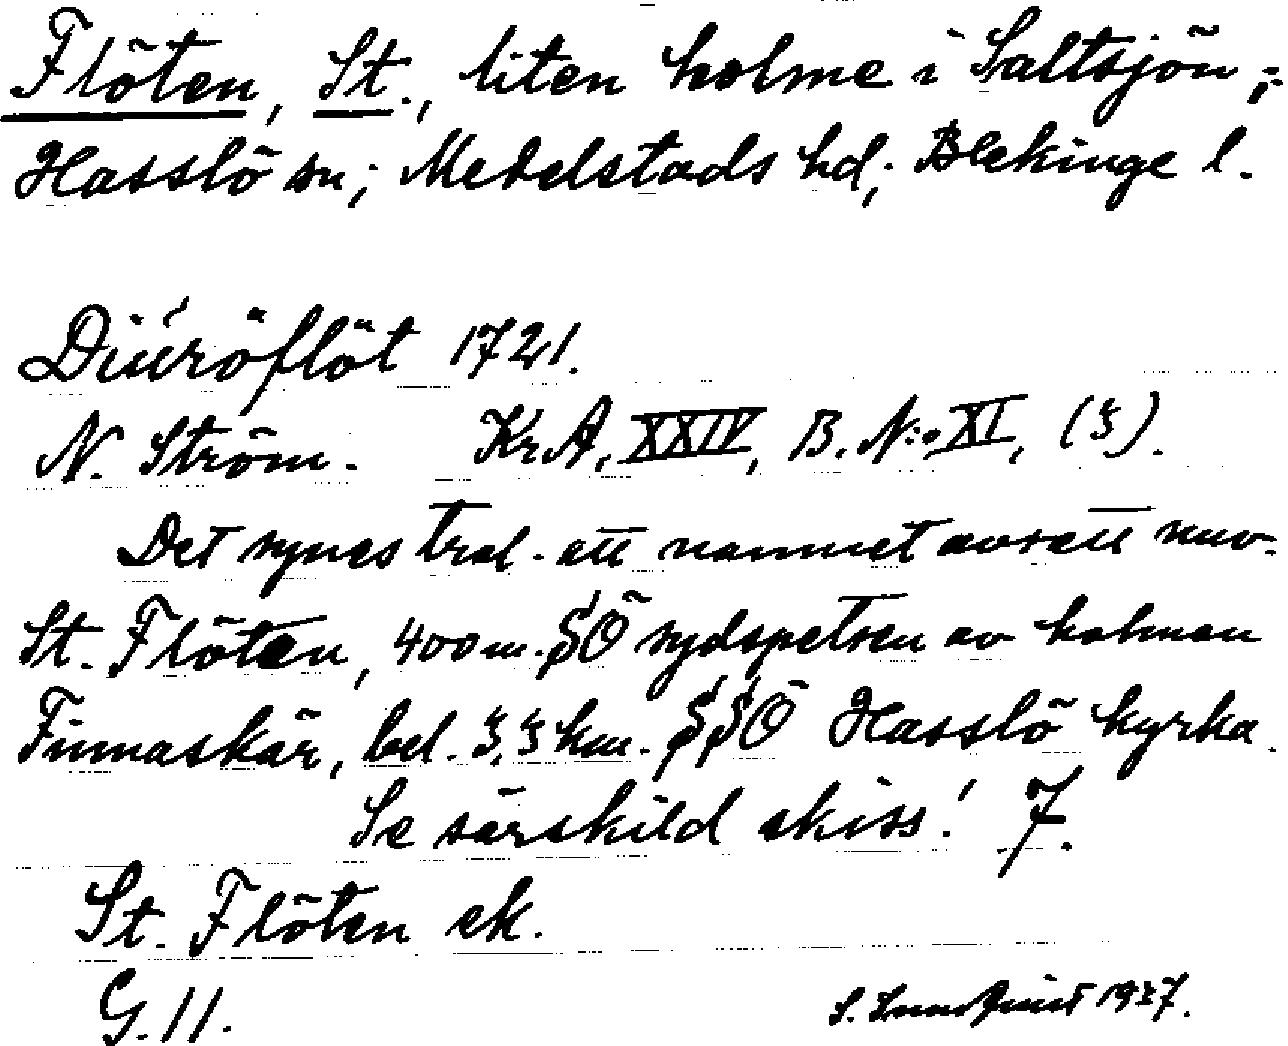 Flöten, St., liten holme i Saltsjön;
Hasslö sn; Medelstads hd; Blekinge l.
Diúröflöt 1721.
N. Ström. Kr.A, XXIV, B. N:o XI, (3).
Det synes tral. att namnet avsett nuv.
St. Flöten, 400 m. SÖ sydspetsen av holmen
Finnaskär, bel. 3,3 km. SSÖ Hasslö kyrka.
Se särskild skiss! 7.
St. Flöten ek.
G. 11. S. 1937.